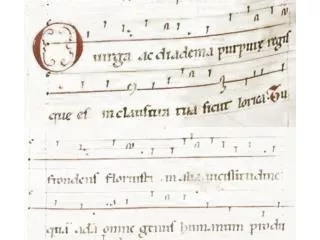 O uirga ac diadema purpure regis
que es in clausura tua sicut lorica. Tu
frondens floruisti in alia uicissitudine
quā adā omne genus humanum produ